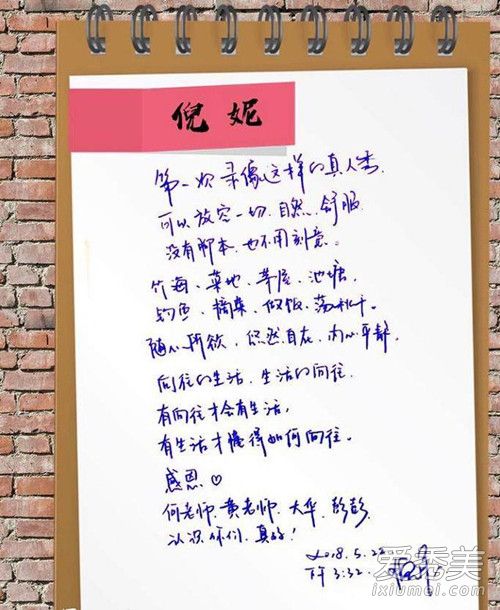 倪妮
第一次录像这样的真人秀.
可以放空一切.自然.舒服.
没有脚本.也不用刻意。
竹海、菜地、茅屋、池塘.
钓鱼、摘菜、做饭、荡秋千.
随心所欲、悠然自在、内心平静.
向往的生活.生活的向往.
有向往才会有生活,
有生活才懂得如何向往。
感恩♡
何老师.黄老师.大华.彭彭
认识你们.真好!
2018.5.22
下午3:32.
爱秀美
ixiumei.com